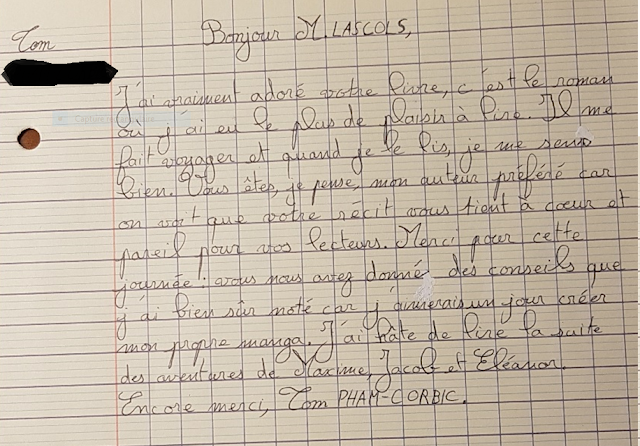 Tom
Bonjour M. LASCOLS,
J'ai vraiment adoré votre livre, c'est le roman
où j'ai eu le plus de plaisir à lire. Il me
fait voyager et quand je le lis, je me sens
bien. Vous êtes, je pense, mon auteur préféré car
on voit que votre récit vous tient à cœur et
pareil pour vos lecteurs. Merci pour cette
journée : vous nous avez donné des conseils que
j'ai bien sûr noté car j'aimerais un jour créer
mon propre manga. J'ai hâte de lire la suite
des aventures de Maxime, Jacob et Eléanor.
Encore merci, Tom PHAM-CORBIC.